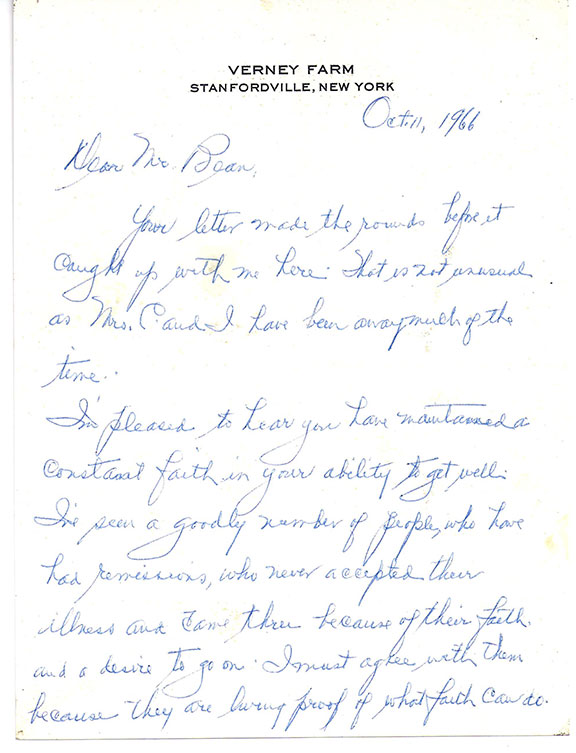 VERNEY FARM
STANFORDVILLE, NEW YORK
Oct. 11, 1966
Dear Mr. Bean,
Your letter made the rounds before it
caught up with me here. That is not unusual
as Mrs. C and I have been away much of the
time.
I'm pleased to hear you have maintained a
constant faith in your ability to get well.
I've seen a goodly number of people, who have
had remissions, who never accepted their
illness and came thru because of their faith
and a desire to go on. I must agree with them
because they are living proof of what faith can do.